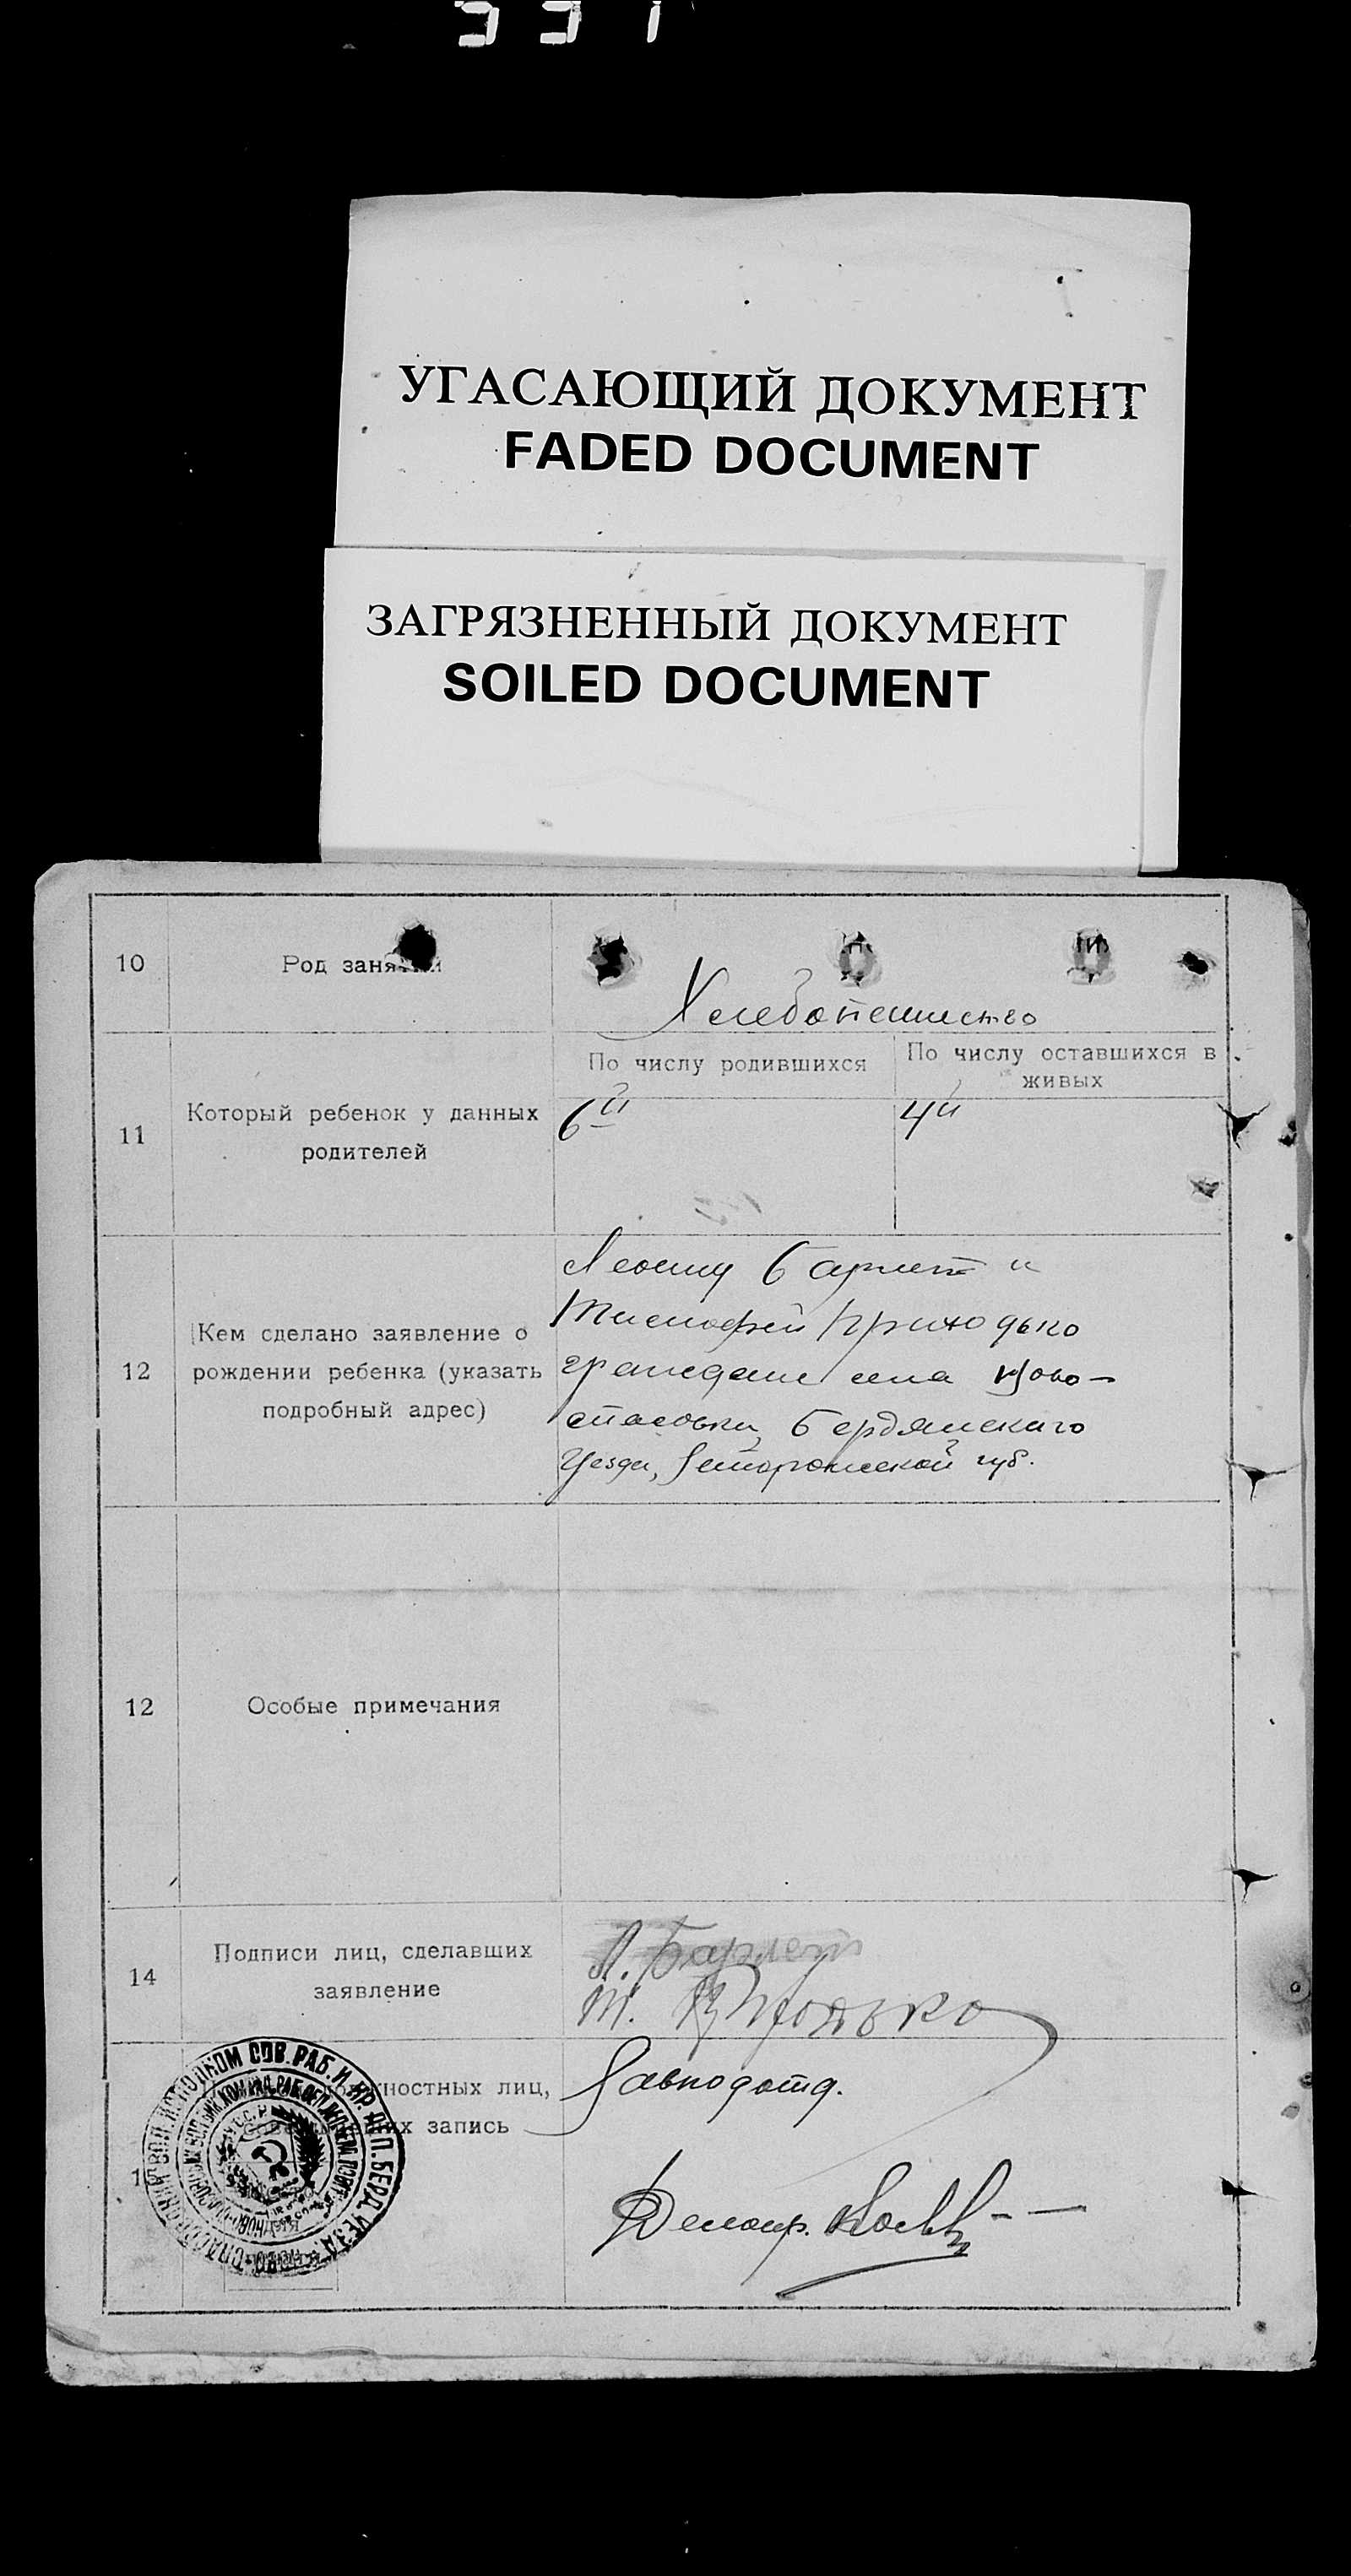 УГАСАЮЩИЙ ДОКУМЕНТ
FADED DOCUMENT
ЗАГРЯЗНЕННЫЙ ДОКУМЕНТ
SOILED DOCUMENT
10
Род занятий
Хлебопашество
По числу родившихся
По числу оставшихся в
живых
11
Который ребенок у данных
родителей
6й
4й
12
Кем сделано заявление о
рождении ребенка (указать
подробный адрес)
и
Тимофей Приходько
граждане села Ново-
спасовки, Бердянскаго
Уезда, губ.
12
Особые примечания
14
Подписи лиц, сделавших
заявление
Т. Приходько
ностных лиц,
запись
Завподотд.
ИСПОЛКОМ СОВ. РАБ. И КР. ДЕП. БЕРД. УЕЗД.